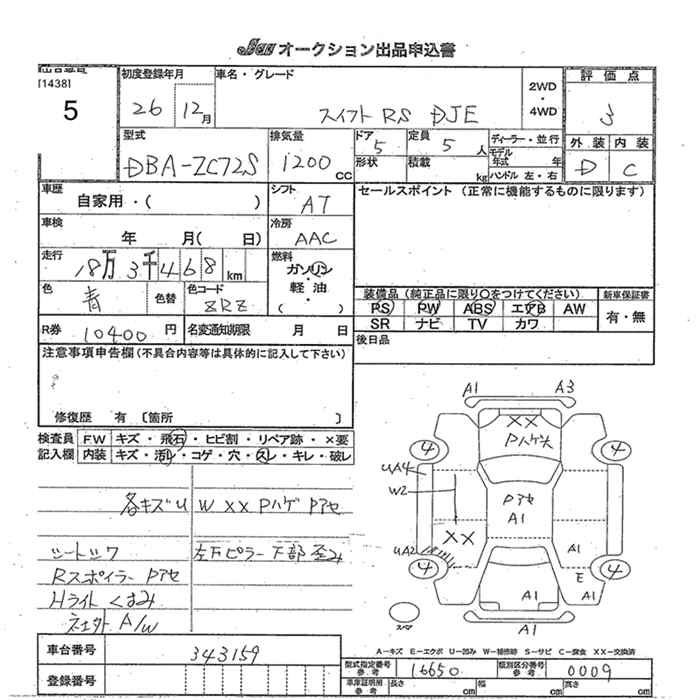 JAA オークション出品申込書
[1438]
5
初度登録年月
26 12月
車名・グレード
スイフト RS DJE
2WD
・
4WD
評価点
3
外装 内装
D C
型式
DBA-ZC72S
排気量
1200 CC
ドア 5
形状
定員 5 人
積載 kg
ディーラー・並行
モデル年式 年
ハンドル 左・右
車歴
自家用・( )
シフト
AT
セールスポイント (正常に機能するものに限ります)
車検
年 月( 日)
冷房
AAC
走行
18万3千468km
燃料
ガソリン
軽油
( )
色
青
色替
色コード
ZRZ
装備品 (純正品に限り○をつけてください)
新車保証書
PS PW ABS エアB AW
有・無
SR ナビ TV カワ
R券
10400円
名変通知期限 月 日
後日品
注意事項申告欄 (不具合内容等は具体的に記入して下さい)
修復歴 有 〔箇所 〕
検査員記入欄
FW キズ・飛石・ヒビ割・リペア跡・×要
内装 キズ・汚レ・コゲ・穴・スレ・キレ・破レ
各キズU W XX Pハゲ Pアセ
シートシワ
左Bピラー下部歪み
Rスポイラー Pアセ
Hライトくすみ
社外 A/W
A1 A3
XX
Pハゲ大
4 4
UA4
W2
Pアセ
A1
XX
UA2
A1
4 4
E
A1 A1
A1
スペア
A-キズ E-エクボ U-凹み W-補修跡 S-サビ C-腐食 XX-交換済
車台番号
343159
登録番号
型式指定番号参考
16650
類別区分番号参考
0009
車庫証明用参考
長さ cm 幅 cm 高さ cm